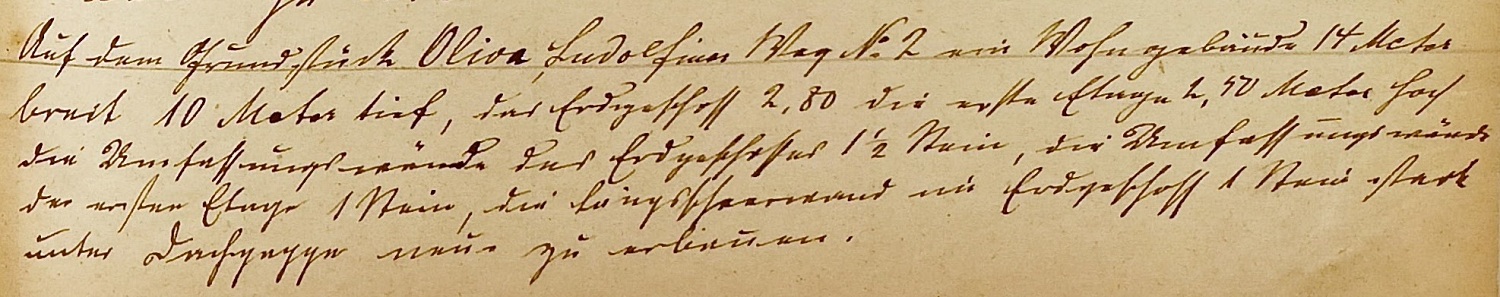 Auf dem Grundstück Oliva, Ludolfiner Weg No 2 ein Wohngebäude 14 Meter
breit 10 Meter tief, das Erdgeschoss 2,80 die erste Etage 2,50 Meter hoch
die Umfassungswände des Erdgeschosses 1½ Stein, die Umfassungswände
der ersten Etage 1 Stein, die Längsscheerwand im Erdgeschoss 1 Stein stark
unter Dachpappe neu zu erbauen.